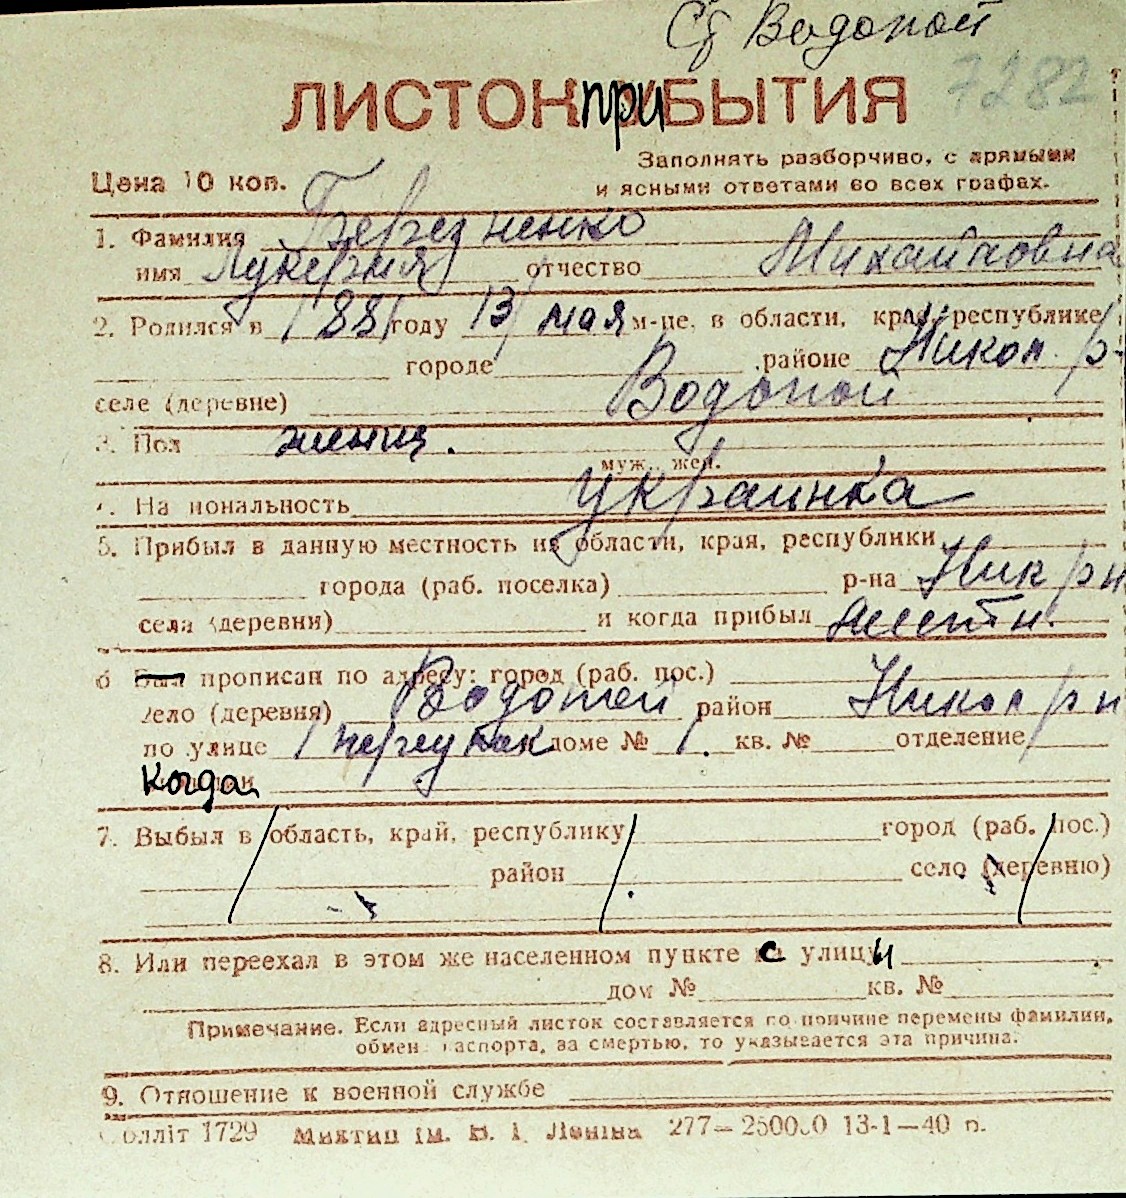 Сƒ Водопой
7282
ЛИСТОК прибытия
Заполнять разборчиво, с прямыми
Цена 10 коп.
и ясными ответами во всех графах.
1. Фамилия Бередненко
имя Лукерия отчество Михайловна
2. Родился в 1881 году 13 мая м-це, в области, крае, республике
городе районе Никол. р-
селе (деревне) Водопой
3. Пол женщ.
муж., жен.
4. Национальность украинка
5. Прибыл в данную местность из области, края, республики
города (раб. поселка) р-на Ник р н
села (деревни) и когда прибыл местн.
6 прописан по адресу: город (раб. пос.)
село (деревня) Водопой район Никол р н
по улице 1 переулок доме № 1. кв. № отделение
когда
7. Выбыл в область, край, республику город (раб. пос.)
район село (деревню)
8. Или переехал в этом же населенном пункте с улицы
дом № кв. №
Примечание. Если адресный листок составляется по причине перемены фамилии,
обмен паспорта, за смертью, то указывается эта причина.
9. Отношение к военной службе
Облліт 1729 Миктип ім. В. І. Леніна 277—250000 13-1—40 р.